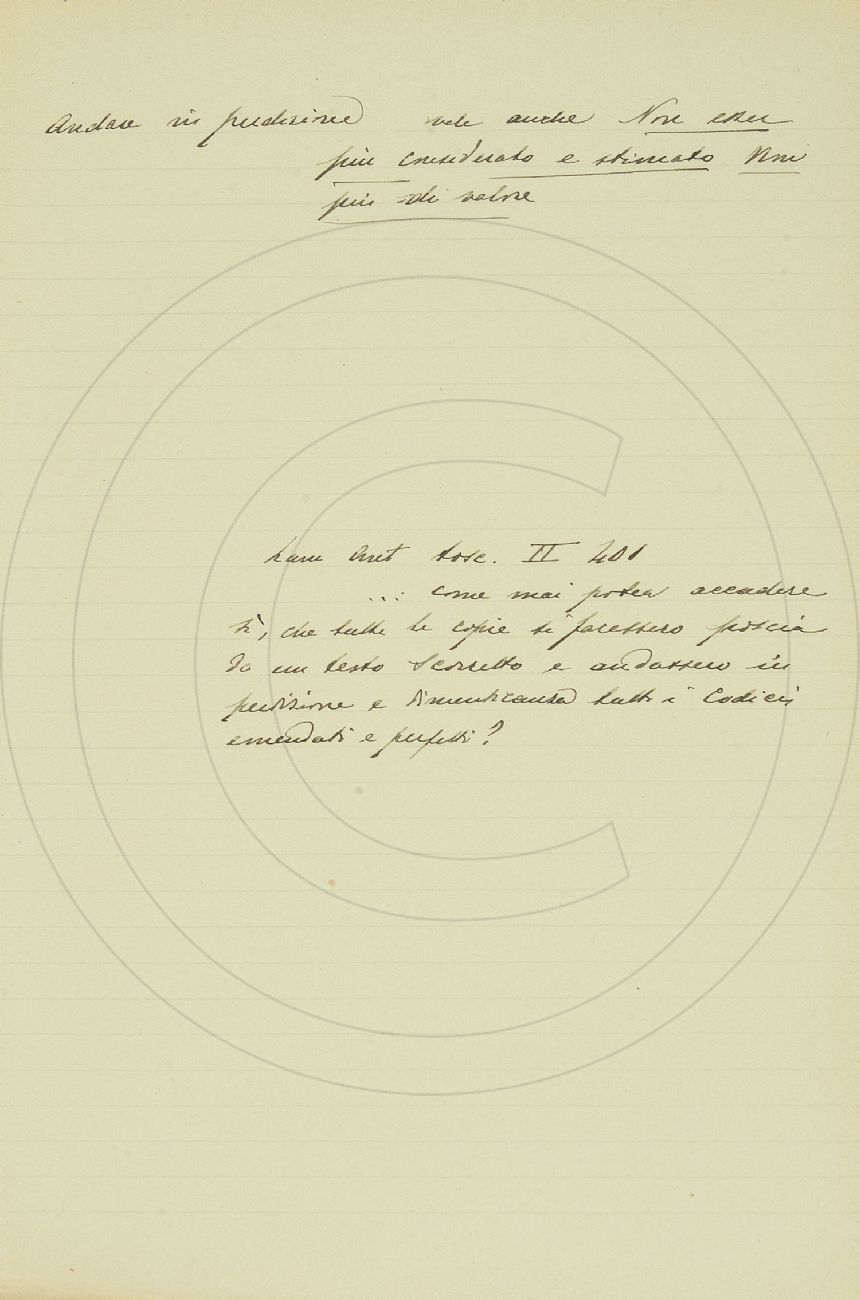 Andare in perdizione vale anche Non esser
più considerato e stimato Non
più di valore
Lam Ant tosc. II 401
... come mai potea accadere
sì, che tutte le copie si facessero poscia
da un testo scorretto e andassero in
perdizione e dimenticanza tutti i Codici
emendati e perfetti?